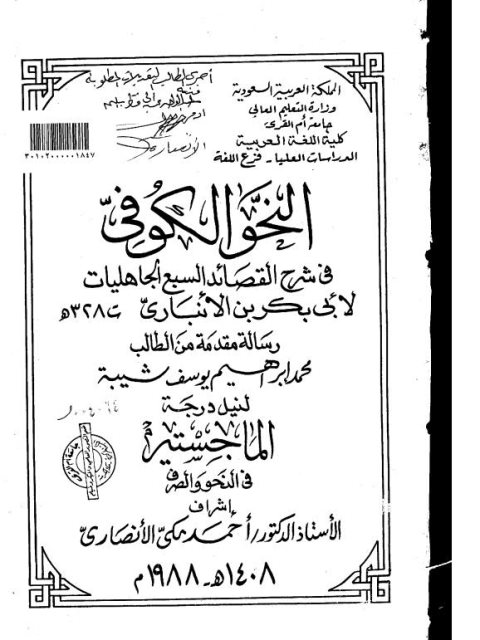 المملكة العربية السعودية
وزارة التعليم العالي
جامعة أم القرى
كلية اللغة العربية
الدراسات العليا - فرع اللغة
أجرى الطالب التعديلات المطلوبة
٣٠١٠٢٠٠٠٠٠١٨٤٧
النحو الكوفي
في شرح القصائد السبع الجاهليات
لأبي بكر بن الأنباري ت ٣٢٨ هـ
رسالة مقدمة من الطالب
محمد إبراهيم يوسف شيبة
لنيل درجة
الماجستير
في النحو والصرف
إشراف
الأستاذ الدكتور/ أحمد مكي الأنصاري
١٤٠٨ هـ - ١٩٨٨ م